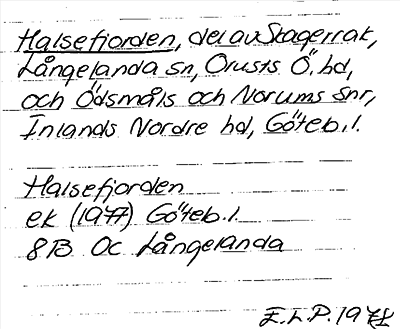 Halsefjorden, del av Skagerrak,
Långelanda sn, Orusts Ö. hd,
och Ödsmåls och Norums snr,
Inlands Nordre hd, Göteb. l.
Halsefjorden
ek (1977) Göteb. l.
8B 0c Långelanda
E.L.P. 1978